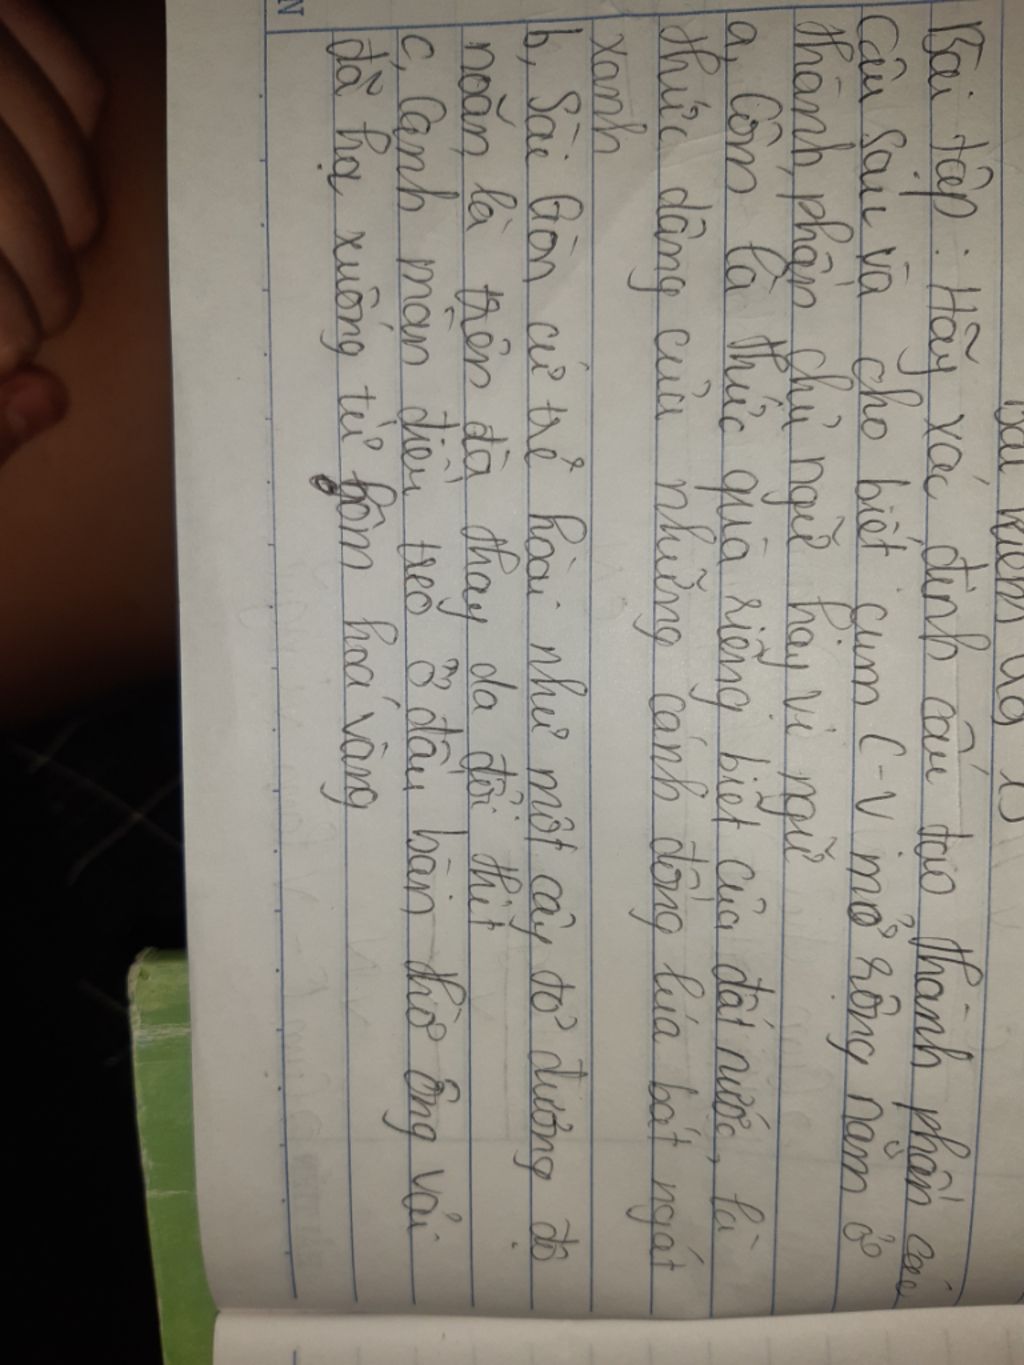 Bài tập: Hãy xác định cấu tạo thành phần các
câu sau và cho biết cụm C-V mở rộng nằm ở
thành phần chủ ngữ hay vị ngữ
a, Cốm là thức quà riêng biệt của đất nước, là
thức dâng của những cánh đồng lúa bát ngát
xanh
b, Sài Gòn cứ trẻ hoài như một cây tơ đương độ
noãn là trên đà thay da đổi thịt
c, Cạnh màn điều treo ở đầu bàn thờ ông vải
đã hạ xuống từ hôm hoá vàng
N